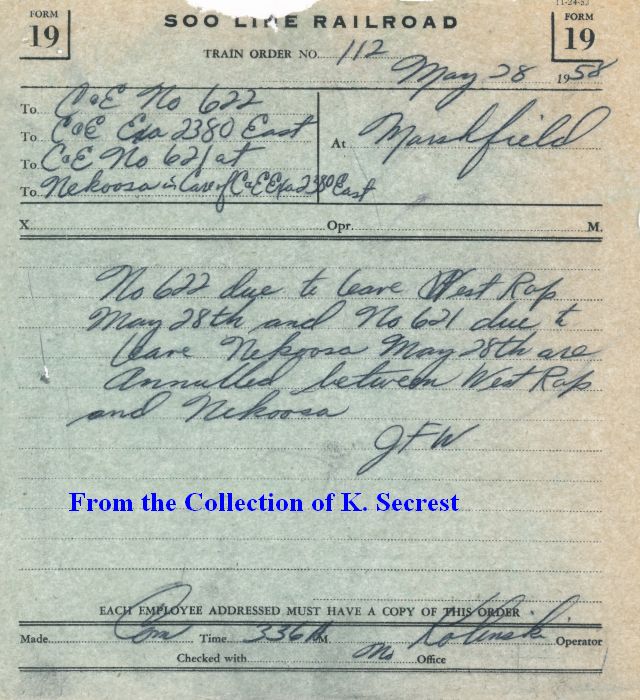 FORM 19
SOO LINE RAILROAD
11-24-53
FORM 19
TRAIN ORDER NO. 112
May 28 1958
To C&E No 622
To C&E Exa 2380 East
To C&E No 621 at
To Nekoosa in Care of C&E Exa 2380 East
At Marshfield
X Opr. M.
No 622 due to leave West Rap
May 28th and No 621 due to
leave Nekoosa May 28th are
Annulled between West Rap
and Nekoosa
JFW
From the Collection of K. Secrest
EACH EMPLOYEE ADDRESSED MUST HAVE A COPY OF THIS ORDER
Made Com Time 336 A M. Kolinski Operator
Checked with Ms Office